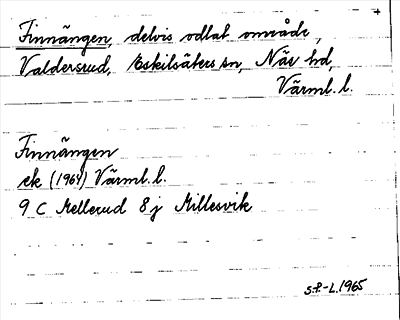 Finnängen, delvis odlat område,
Valdersrud, Eskilsäters sn, Näs hd,
Värml. l.
Finnängen
ek (1964) Värml. l.
9 C Mellerud 8 j Millesvik
S.P.-L. 1965